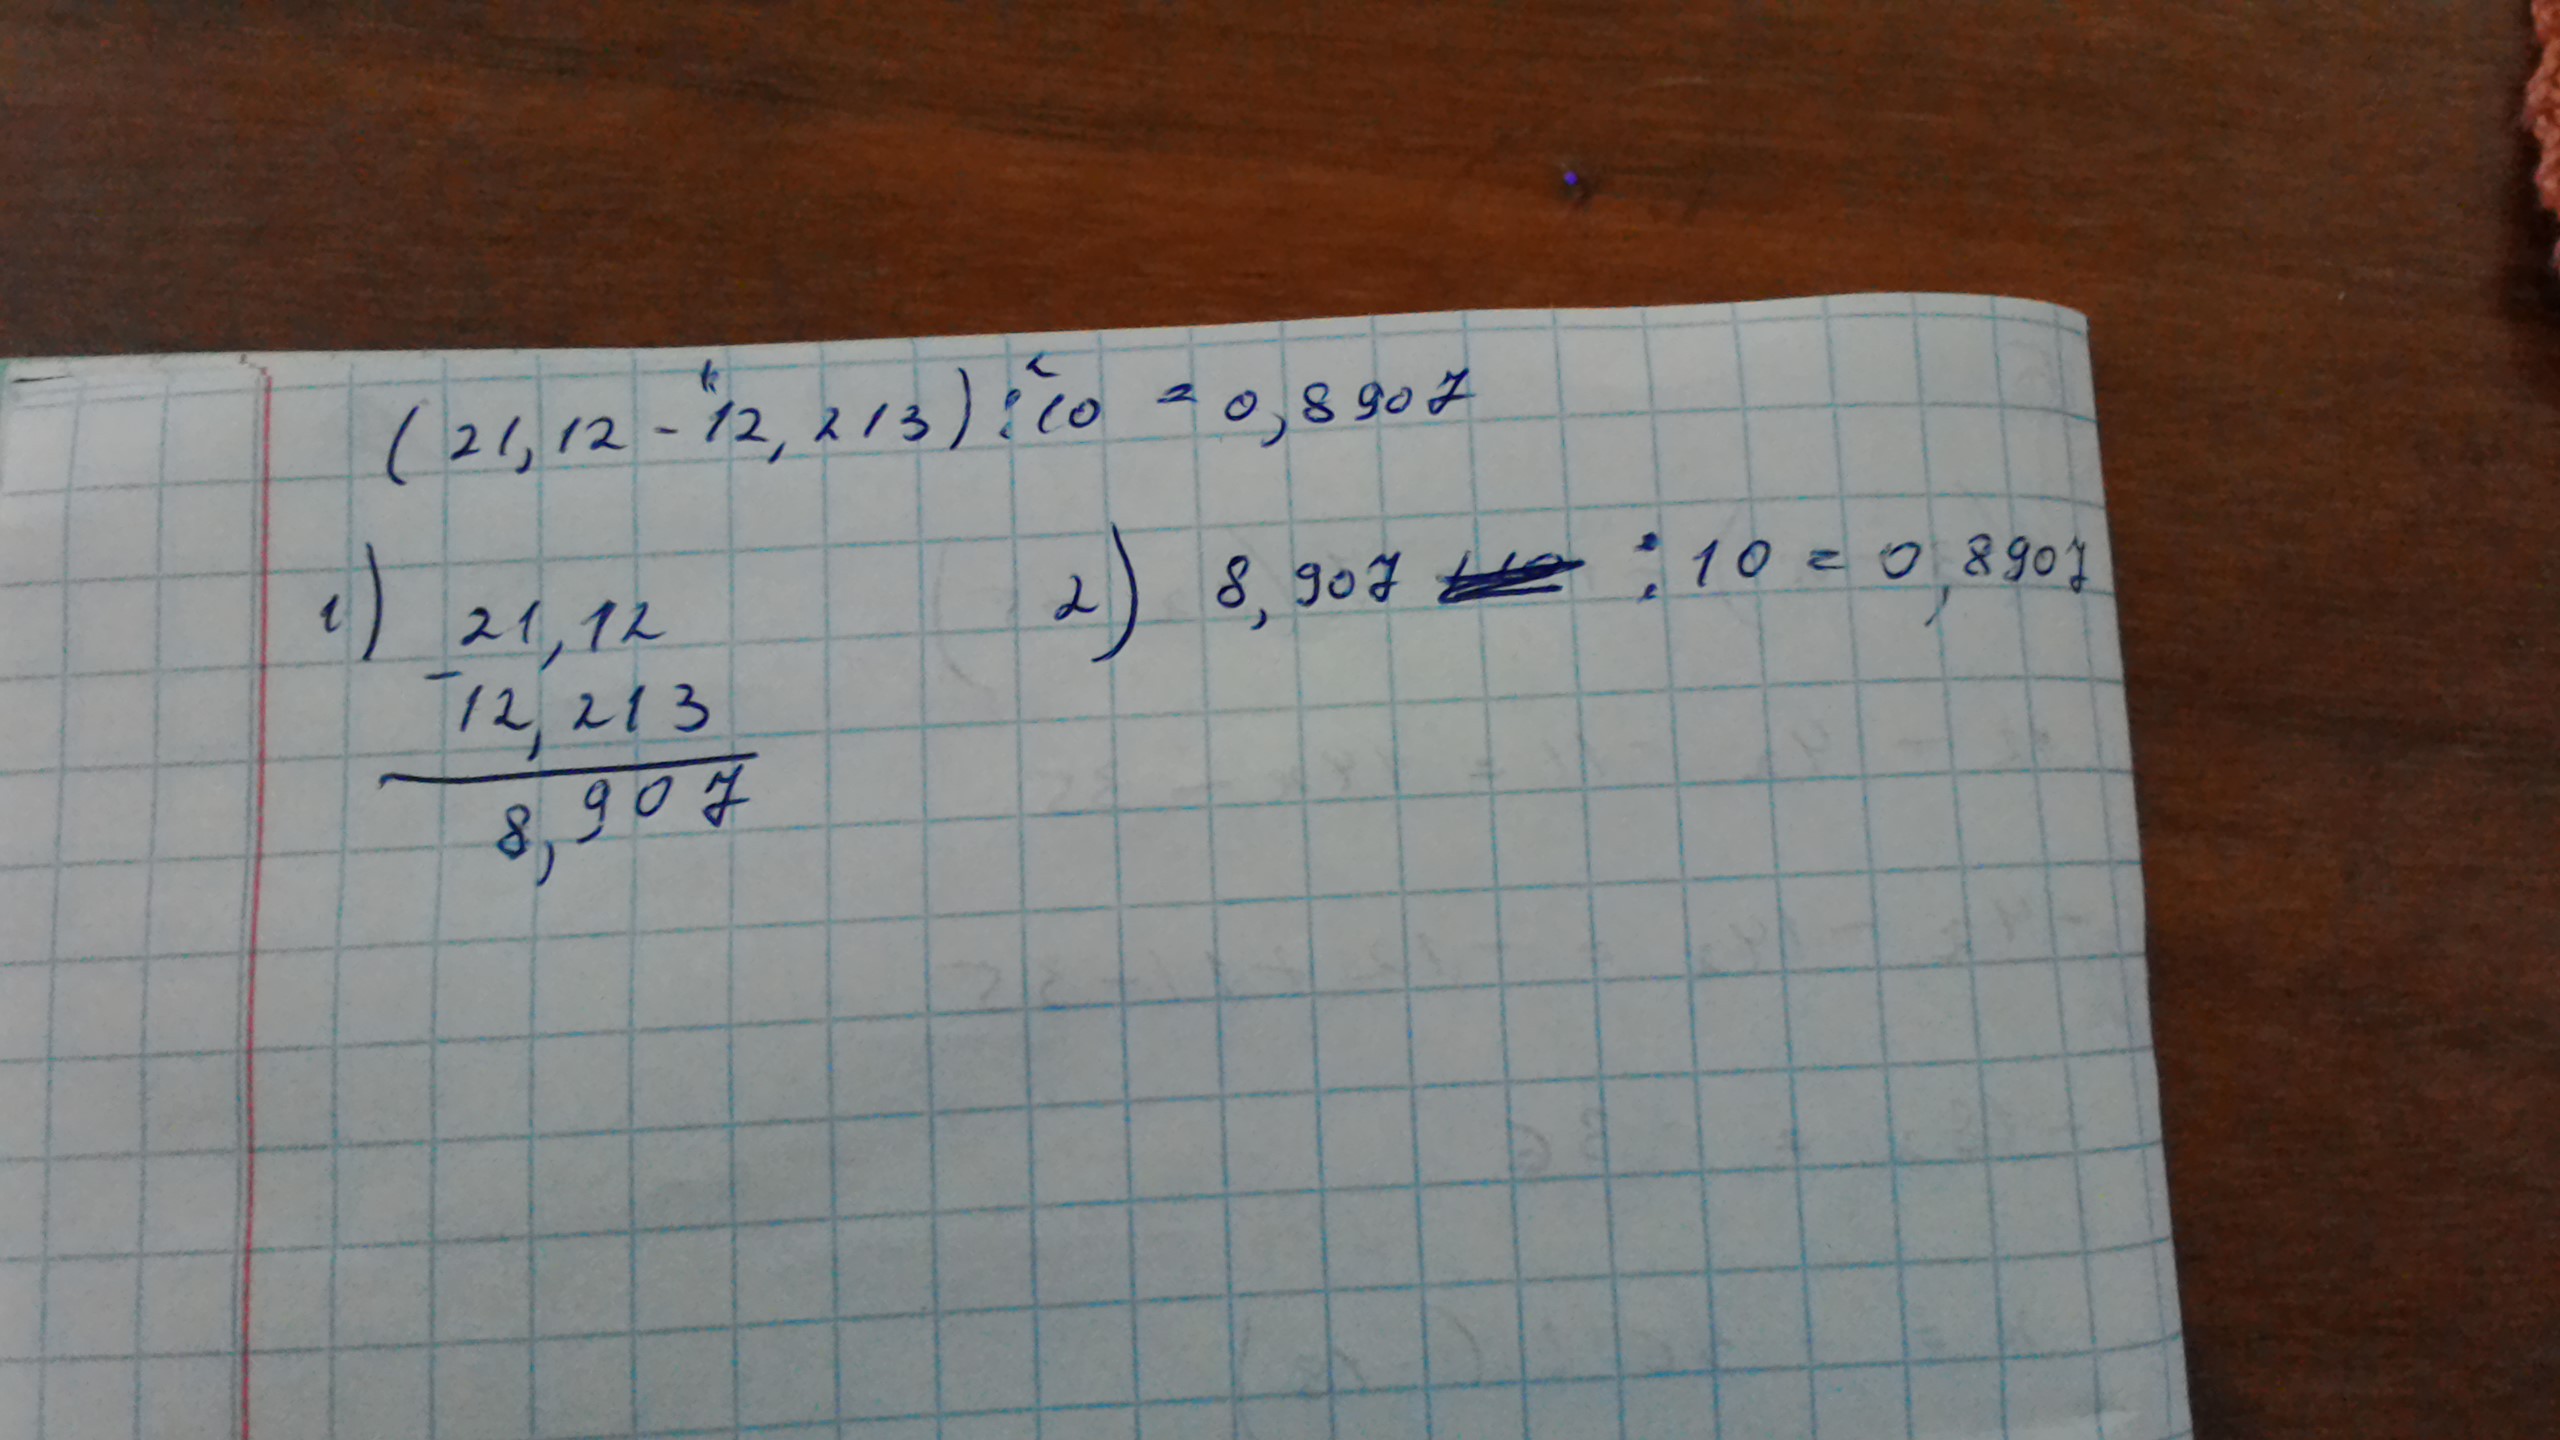 (21,12 - 12,213) : 10 = 0,8907
1) 21,12
- 12,213
8,907
2) 8,907 : 10 = 0,8907